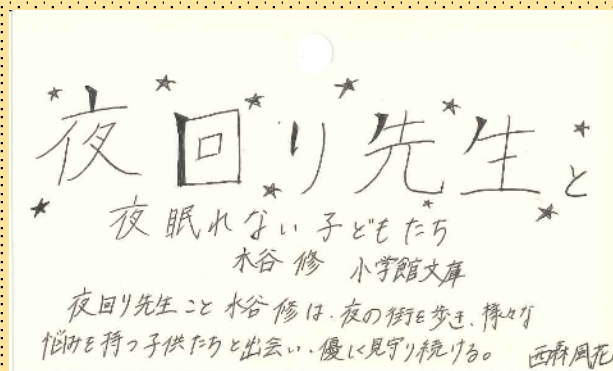 夜回り先生と
夜眠れない子どもたち
水谷 修 小学館文庫
夜回り先生こと水谷修は、夜の街を歩き、様々な
悩みを持つ子供たちと出会い、優しく見守り続ける。 西森風花